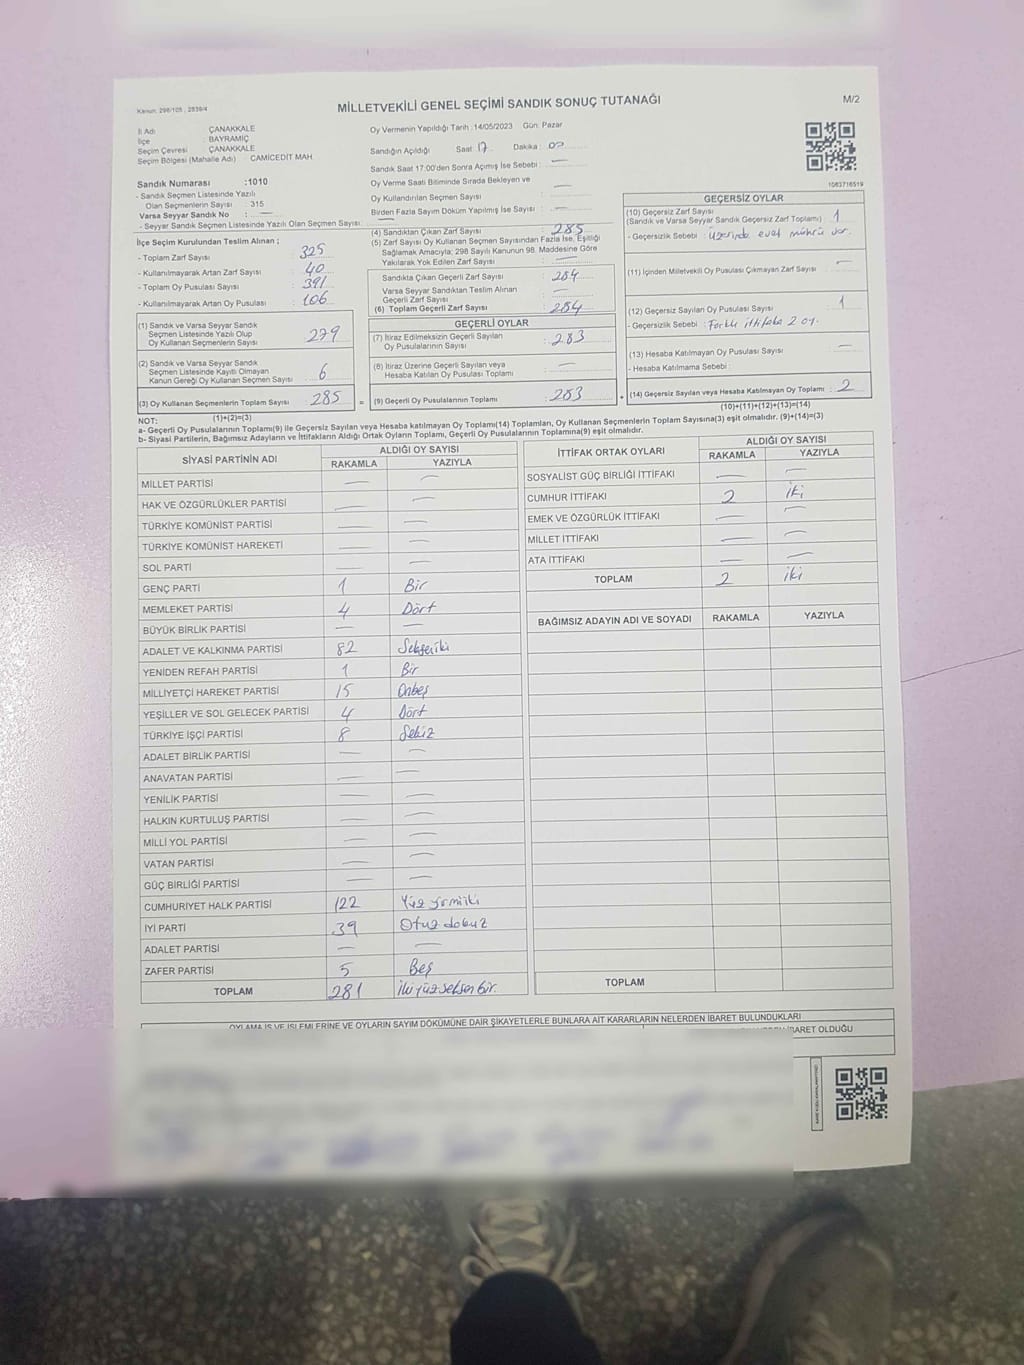 Kanun: 298/105 , 2839/4
MİLLETVEKİLİ GENEL SEÇİMİ SANDIK SONUÇ TUTANAĞI
M/2
İl Adı : ÇANAKKALE
İlçe : BAYRAMİÇ
Seçim Çevresi : ÇANAKKALE
Seçim Bölgesi (Mahalle Adı) : CAMİCEDİT MAH
Sandık Numarası :1010
- Sandık Seçmen Listesinde Yazılı
Olan Seçmenlerin Sayısı : 315
Varsa Seyyar Sandık No : —
- Seyyar Sandık Seçmen Listesinde Yazılı Olan Seçmen Sayısı:
İlçe Seçim Kurulundan Teslim Alınan ;
- Toplam Zarf Sayısı : 325
- Kullanılmayarak Artan Zarf Sayısı : 40
- Toplam Oy Pusulası Sayısı : 391
- Kullanılmayarak Artan Oy Pusulası : 106
(1) Sandık ve Varsa Seyyar Sandık
Seçmen Listesinde Yazılı Olup
Oy Kullanan Seçmenlerin Sayısı : 279
(2) Sandık ve Varsa Seyyar Sandık
Seçmen Listesinde Kayıtlı Olmayan
Kanun Gereği Oy Kullanan Seçmen Sayısı : 6
(3) Oy Kullanan Seçmenlerin Toplam Sayısı : 285
(1)+(2)=(3)
Oy Vermenin Yapıldığı Tarih :14/05/2023 Gün: Pazar
Sandığın Açıldığı Saat 17 Dakika : 00
Sandık Saat 17:00'den Sonra Açılmış İse Sebebi : —
Oy Verme Saati Bitiminde Sırada Bekleyen ve
Oy Kullandırılan Seçmen Sayısı : —
Birden Fazla Sayım Döküm Yapılmış İse Sayısı : —
(4) Sandıktan Çıkan Zarf Sayısı : 285
(5) Zarf Sayısı Oy Kullanan Seçmen Sayısından Fazla İse, Eşitliği
Sağlamak Amacıyla; 298 Sayılı Kanunun 98. Maddesine Göre
Yakılarak Yok Edilen Zarf Sayısı : —
Sandıkta Çıkan Geçerli Zarf Sayısı : 284
Varsa Seyyar Sandıktan Teslim Alınan
Geçerli Zarf Sayısı : —
(6) Toplam Geçerli Zarf Sayısı : 284
GEÇERLİ OYLAR
(7) İtiraz Edilmeksizin Geçerli Sayılan
Oy Pusulalarının Sayısı : 283
(8) İtiraz Üzerine Geçerli Sayılan veya
Hesaba Katılan Oy Pusulası Toplamı : —
= (9) Geçerli Oy Pusulalarının Toplamı : 283 +
1063716519
GEÇERSİZ OYLAR
(10) Geçersiz Zarf Sayısı
(Sandık ve Varsa Seyyar Sandık Geçersiz Zarf Toplamı) : 1
- Geçersizlik Sebebi : Üzerinde evet mührü var.
(11) İçinden Milletvekili Oy Pusulası Çıkmayan Zarf Sayısı : —
(12) Geçersiz Sayılan Oy Pusulası Sayısı : 1
- Geçersizlik Sebebi : Farklı ittifaka 2 oy.
(13) Hesaba Katılmayan Oy Pusulası Sayısı : —
- Hesaba Katılmama Sebebi :
(14) Geçersiz Sayılan veya Hesaba Katılmayan Oy Toplamı : 2
(10)+(11)+(12)+(13)=(14)
NOT:
a- Geçerli Oy Pusulalarının Toplamı(9) ile Geçersiz Sayılan veya Hesaba Katılmayan Oy Toplamı(14) Toplamları, Oy Kullanan Seçmenlerin Toplam Sayısına(3) eşit olmalıdır. (9)+(14)=(3)
b- Siyasi Partilerin, Bağımsız Adayların ve İttifakların Aldığı Ortak Oyların Toplamı, Geçerli Oy Pusulalarının Toplamına(9) eşit olmalıdır.
SİYASİ PARTİNİN ADI ALDIĞI OY SAYISI
RAKAMLA YAZIYLA
MİLLET PARTİSİ — —
HAK VE ÖZGÜRLÜKLER PARTİSİ — —
TÜRKİYE KOMÜNİST PARTİSİ — —
TÜRKİYE KOMÜNİST HAREKETİ — —
SOL PARTİ — —
GENÇ PARTİ 1 Bir
MEMLEKET PARTİSİ 4 Dört
BÜYÜK BİRLİK PARTİSİ — —
ADALET VE KALKINMA PARTİSİ 82 Seksen iki
YENİDEN REFAH PARTİSİ 1 Bir
MİLLİYETÇİ HAREKET PARTİSİ 15 Onbeş
YEŞİLLER VE SOL GELECEK PARTİSİ 4 Dört
TÜRKİYE İŞÇİ PARTİSİ 8 Sekiz
ADALET BİRLİK PARTİSİ — —
ANAVATAN PARTİSİ — —
YENİLİK PARTİSİ — —
HALKIN KURTULUŞ PARTİSİ — —
MİLLİ YOL PARTİSİ — —
VATAN PARTİSİ — —
GÜÇ BİRLİĞİ PARTİSİ — —
CUMHURİYET HALK PARTİSİ 122 Yüz yirmi iki
İYİ PARTİ 39 Otuz dokuz
ADALET PARTİSİ — —
ZAFER PARTİSİ 5 Beş
TOPLAM 281 İki yüz seksen bir.
İTTİFAK ORTAK OYLARI ALDIĞI OY SAYISI
RAKAMLA YAZIYLA
SOSYALİST GÜÇ BİRLİĞİ İTTİFAKI — —
CUMHUR İTTİFAKI 2 iki
EMEK VE ÖZGÜRLÜK İTTİFAKI — —
MİLLET İTTİFAKI — —
ATA İTTİFAKI — —
TOPLAM 2 iki
BAĞIMSIZ ADAYIN ADI VE SOYADI RAKAMLA YAZIYLA
TOPLAM
OYLAMA İŞ VE İŞLEMLERİNE VE OYLARIN SAYIM DÖKÜMÜNE DAİR ŞİKAYETLERLE BUNLARA AİT KARARLARIN NELERDEN İBARET BULUNDUKLARI
İBARET OLDUĞU